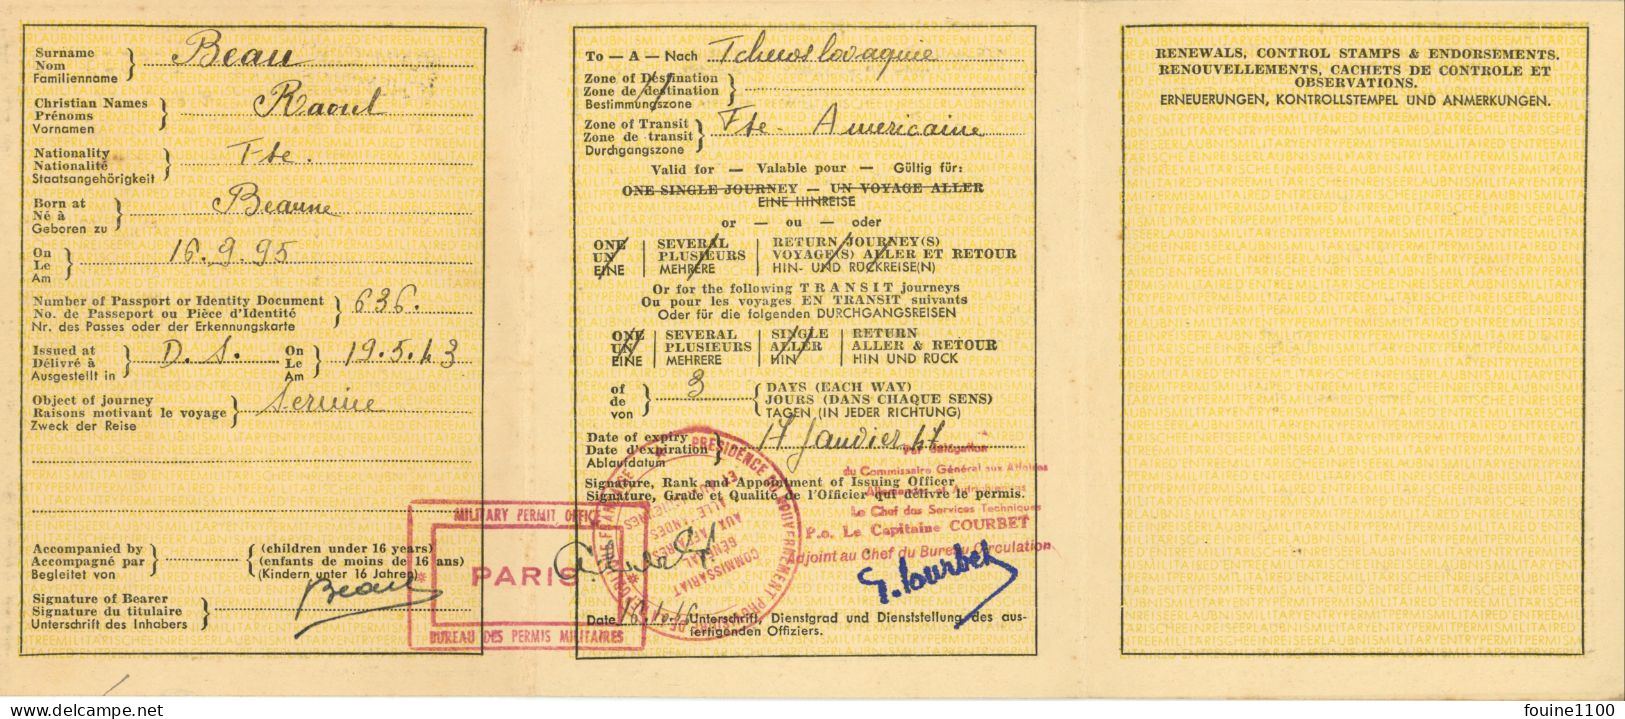 Surname
Nom
Familienname } Beau
Christian Names
Prénoms
Vornamen } Raoul
Nationality
Nationalité
Staatsangehörigkeit } Fse.
Born at
Né à
Geboren zu } Beaune
On
Le
Am } 16.9.95
Number of Passport or Identity Document
No. de Passeport ou Pièce d'Identité
Nr. des Passes oder der Erkennungskarte } 636.
Issued at
Délivré à
Ausgestellt in } D. S. On
Le
Am } 19.5.43
Object of journey
Raisons motivant le voyage
Zweck der Reise } Service
Accompanied by
Accompagné par
Begleitet von } { (children under 16 years)
(enfants de moins de 16 ans)
(Kindern unter 16 Jahren)
Signature of Bearer
Signature du titulaire
Unterschrift des Inhabers } Beau
MILITARY PERMIT OFFICE
PARIS
BUREAU DES PERMIS MILITAIRES
To — A — Nach Tchécoslovaquie
Zone of Destination
Zone de destination
Bestimmungszone }
Zone of Transit
Zone de transit
Durchgangszone } Fse - Américaine
Valid for — Valable pour — Gültig für:
ONE SINGLE JOURNEY — UN VOYAGE ALLER
EINE HINREISE
or — ou — oder
ONE | SEVERAL | RETURN JOURNEY(S)
UN | PLUSIEURS | VOYAGE(S) ALLER ET RETOUR
EINE | MEHRERE | HIN- UND RÜCKREISE(N)
Or for the following TRANSIT journeys
Ou pour les voyages EN TRANSIT suivants
Oder für die folgenden DURCHGANGSREISEN
ONE | SEVERAL | SINGLE | RETURN
UN | PLUSIEURS | ALLER | ALLER & RETOUR
EINE | MEHRERE | HIN | HIN UND RÜCK
of
de
von } 3 { DAYS (EACH WAY)
JOURS (DANS CHAQUE SENS)
TAGEN (IN JEDER RICHTUNG)
Date of expiry
Date d'expiration
Ablaufdatum } 17 Janvier 47
Signature, Rank and Appointment of Issuing Officer
Signature, Grade et Qualité de l'Officier qui délivre le permis.
Par délégation
du Commissaire Général aux Affaires
Allemandes et Autrichiennes
Le Chef des Services Techniques
P.o. Le Capitaine COURBET
Adjoint au Chef du Bureau Circulation
PRESIDENCE DU GOUVERNEMENT PROVISOIRE DE LA REPUBLIQUE FRANÇAISE
COMMISSARIAT
GÉNÉRAL
AUX AFFAIRES
ALLEMANDES
G. Courbet
Date Unterschrift, Dienstgrad und Dienststellung des aus-
fertigenden Offiziers.
RENEWALS, CONTROL STAMPS & ENDORSEMENTS.
RENOUVELLEMENTS, CACHETS DE CONTROLE ET
OBSERVATIONS.
ERNEUERUNGEN, KONTROLLSTEMPEL UND ANMERKUNGEN.
delcampe.net
fouine1100